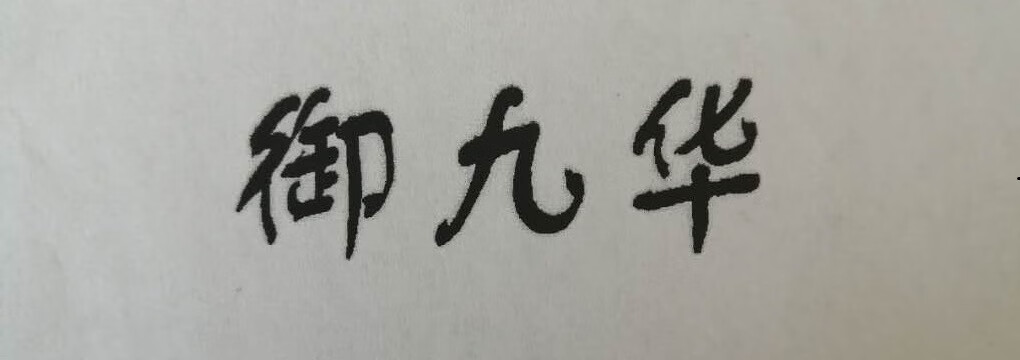 御九华